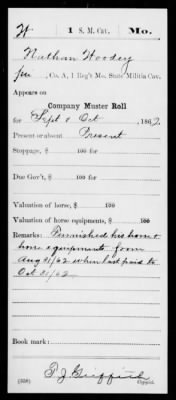 H | 1 S. M. Cav. | Mo.
Nathan Hoodey
Co. A, 1 Reg't Mo. State Militia Cav.
Appears on
Company Muster Roll
for Sept & Oct, 1862.
Present or absent Present
Stoppage, $ 100 for
Due Gov't, $ 100 for
Valuation of horse, $ 100
Valuation of horse equipments, $ 100
Remarks: Furnished his horse &
horse equipments from
Aug 31/62 when last paid to
Oct 31/62
Book mark:
(358)
P. J. Griffith
Copyist.